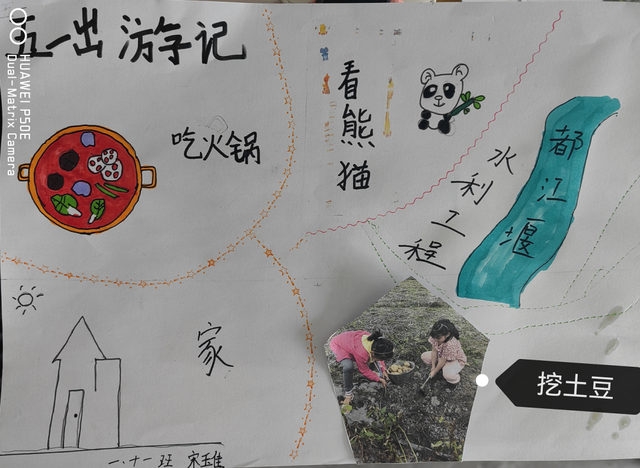 五一出游学记
HUAWEI P50E
Dual-Matrix Camera
吃火锅
看熊猫
都江堰
水利工程
家
挖土豆
一.十一班